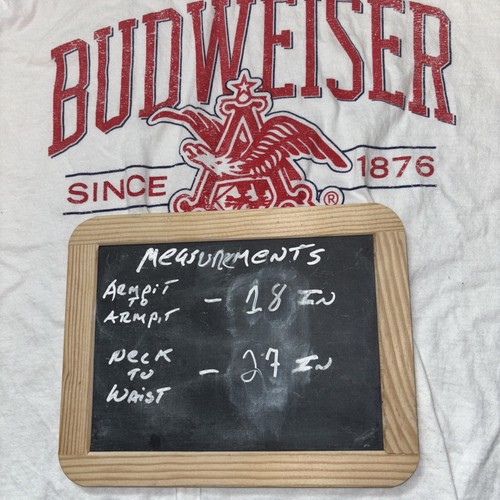 BUDWEISER
SINCE 1876
®
MEASUREMENTS
ARMPIT
TO
ARMPIT
- 18 IN
NECK
TO
WAIST
- 27 IN